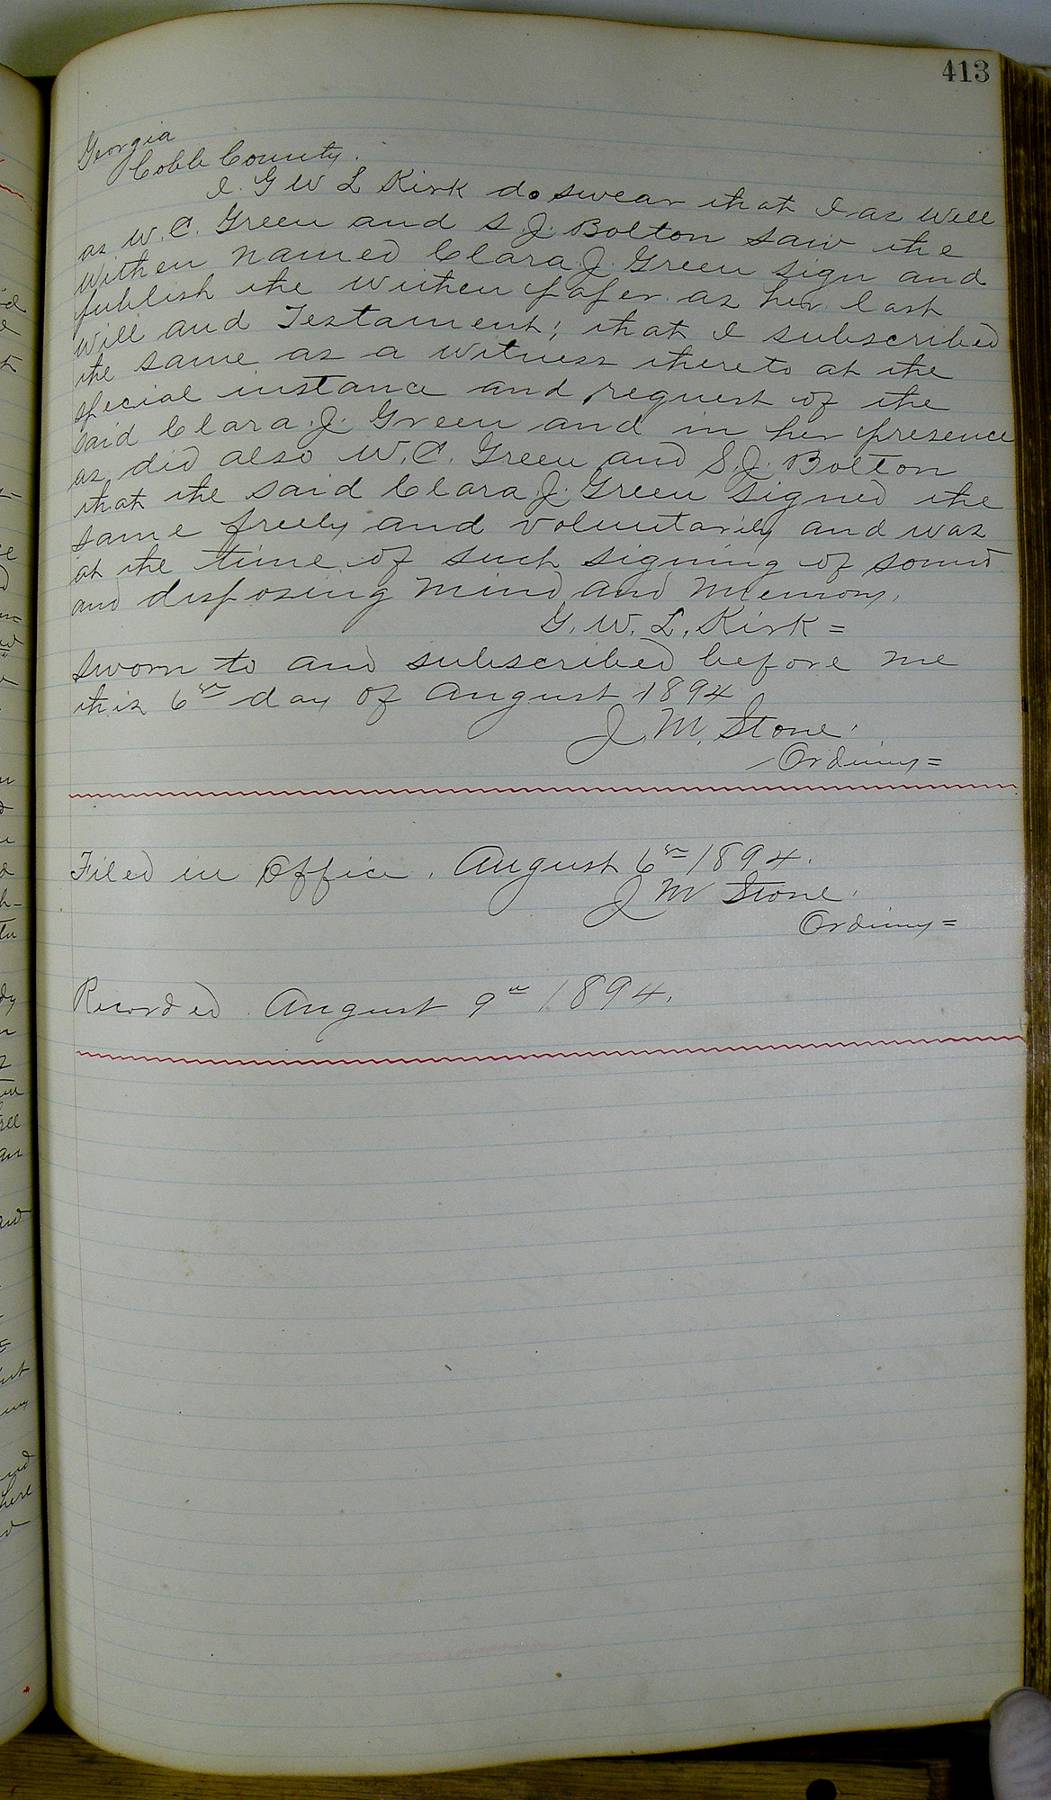 413
Georgia
Cobb County.
I. G W L Kirk do swear that I as well
as W. C. Green and S J. Bolton saw the
withen named Clara J. Green sign and
publish the withen paper as her last
will and Testament; that I subscribed
the same as a witness thereto at the
special instance and request of the
said Clara. J. Green and in her presence
as did also W. C. Green and S. J. Bolton
that the said Clara J. Green signed the
same freely and voluntarily and was
at the time of such signing of sound
and disposing mind and memory.
G. W. L. Kirk =
Sworn to and subscribed before me
this 6th day of August 1894
J. M. Stone.
Ordinary =
Filed in Office. August 6th 1894.
J M Stone.
Ordinary =
Recorded August 9th 1894.